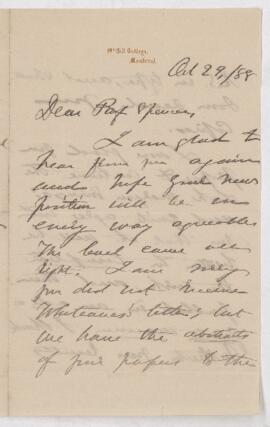 McGill College,
Montreal.
Oct 29, /88
Dear Prof Spencer,
I am glad to
hear from you again
and hope your new
position will be in
every way agreeable
The came all
right. I am sorry
you did not receive
Whiteaves' letter; but
we have the abstracts
of your papers to the